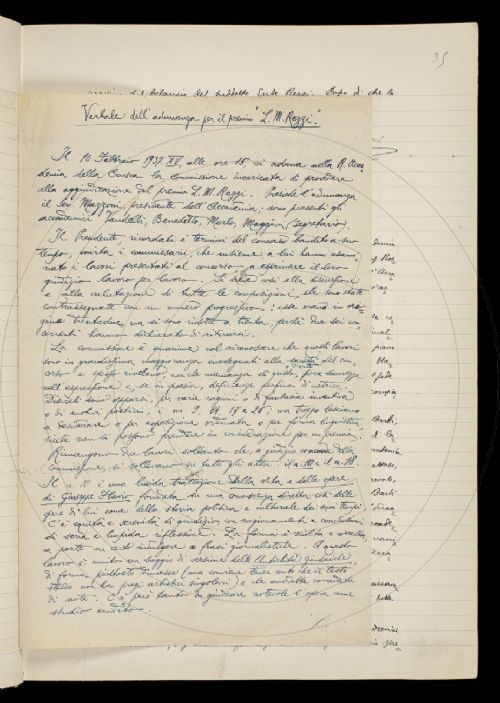 35
del bilancio del suddetto Ente Bessi. Dopo di che la
Verbale dell'adunanza per il premio "L. M. Rezzi".
Il 10 Febbraio 1937 XV alle ore 15, si aduna nella R. Acca-
demia della Crusca la Commissione incaricata di procedere
alla aggiudicazione del premio L. M. Rezzi. Presiede l'adunanza
il Sen. Mazzoni, presidente dell'Accademia: sono presenti gli
accademici Vandelli, Benedetto, Merlo, Maggini (segretario).
Il Presidente, ricordati i termini del concorso bandito a suo
tempo, invita i commissari, che insieme a lui hanno esami-
nato i lavori presentati al concorso, a esprimere il loro
giudizio lavoro per lavoro. Si viene così alla discussione
e alla valutazione di tutte le composizioni, che sono state
contrassegnate con un numero progressivo: esse erano in ori-
gine trentadue, ma si sono ridotte a trenta, perché due dei con-
correnti hanno dichiarato di ritirarsi.
La commissione è unanime nel riconoscere che questi lavori
sono in grandissima maggioranza inadeguati alla serietà del con-
corso e spesso rivelano, anche mancanza di gusto, poca sicurezza
nell'espressione e, se in poesia, deficienze perfino di metrica.
Discreti sono apparsi, per varie ragioni o di fantasia inventiva
o di motivi poetici, i nn. 9, 14, 19 e 26; ma troppo lasciano
a desiderare o per esposizione ordinata o per forma linguistica,
sicché non si possono prendere in considerazione per un premio.
Rimangono due lavori soltanto che, a giudizio concorde della
Commissione, si sollevano su tutti gli altri: il n. 10 e il n. 18.
Il n. 10 è una lucida trattazione Della vita e delle opere
di Giuseppe Flavio, fondata su una conoscenza diretta così delle
opere di lui come della storia politica e culturale dei suoi tempi.
C'è equità e serenità di giudizio, con ragionamenti e conclusioni
di seria e limpida riflessione. La forma è sciolta e corretta,
a parte un certo indulgere a frasi giornalistiche. A questo
lavoro è unito un saggio di versione delle Antichità giudaiche
di forma piuttosto dimessa (ma conviene tener conto che il testo
stesso non ha pregi artistici singolari) e che avrebbe corredo
di note. C'è però tanto da giudicare notevole l'opera come
studio erudito.